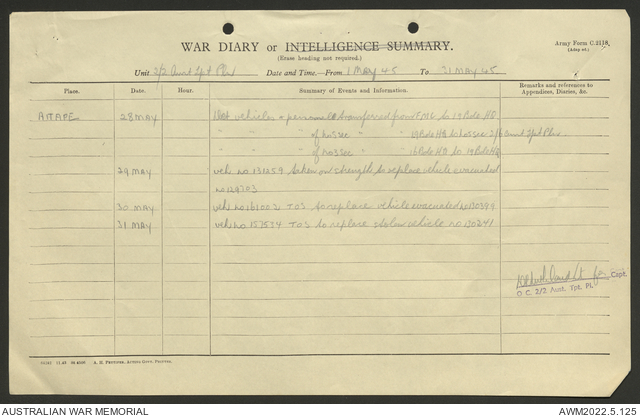 WAR DIARY or INTELLIGENCE SUMMARY.
(Erase heading not required.)
Army Form C.2118
(Adap ed.)
Unit 2/2 Aust Tpt Pln Date and Time—From 1 MAY 45 To 31 MAY 45
Place. Date. Hour. Summary of Events and Information. Remarks and references to Appendices, Diaries, &c.
AITAPE 28 MAY vehicles + personnel transferred from to 19 Bde HQ
" " of " " 19 Bde HQ to 2/6 Aust Tpt Pln
" " of " " 16 Bde HQ to 19 Bde HQ
29 MAY veh. no 131259 taken on strength to replace vehicle evacuated
no 129703
30 MAY veh no 161002 TOS to replace vehicle evacuated no 130399
31 MAY veh. no 157534 TOS to replace stolen vehicle no 130241
Lt for Capt.
O C 2/2 Aust. Tpt. Pl.
A. H. Pettifer, Acting Govt. Printer.
AUSTRALIAN WAR MEMORIAL
AWM2022.5.125